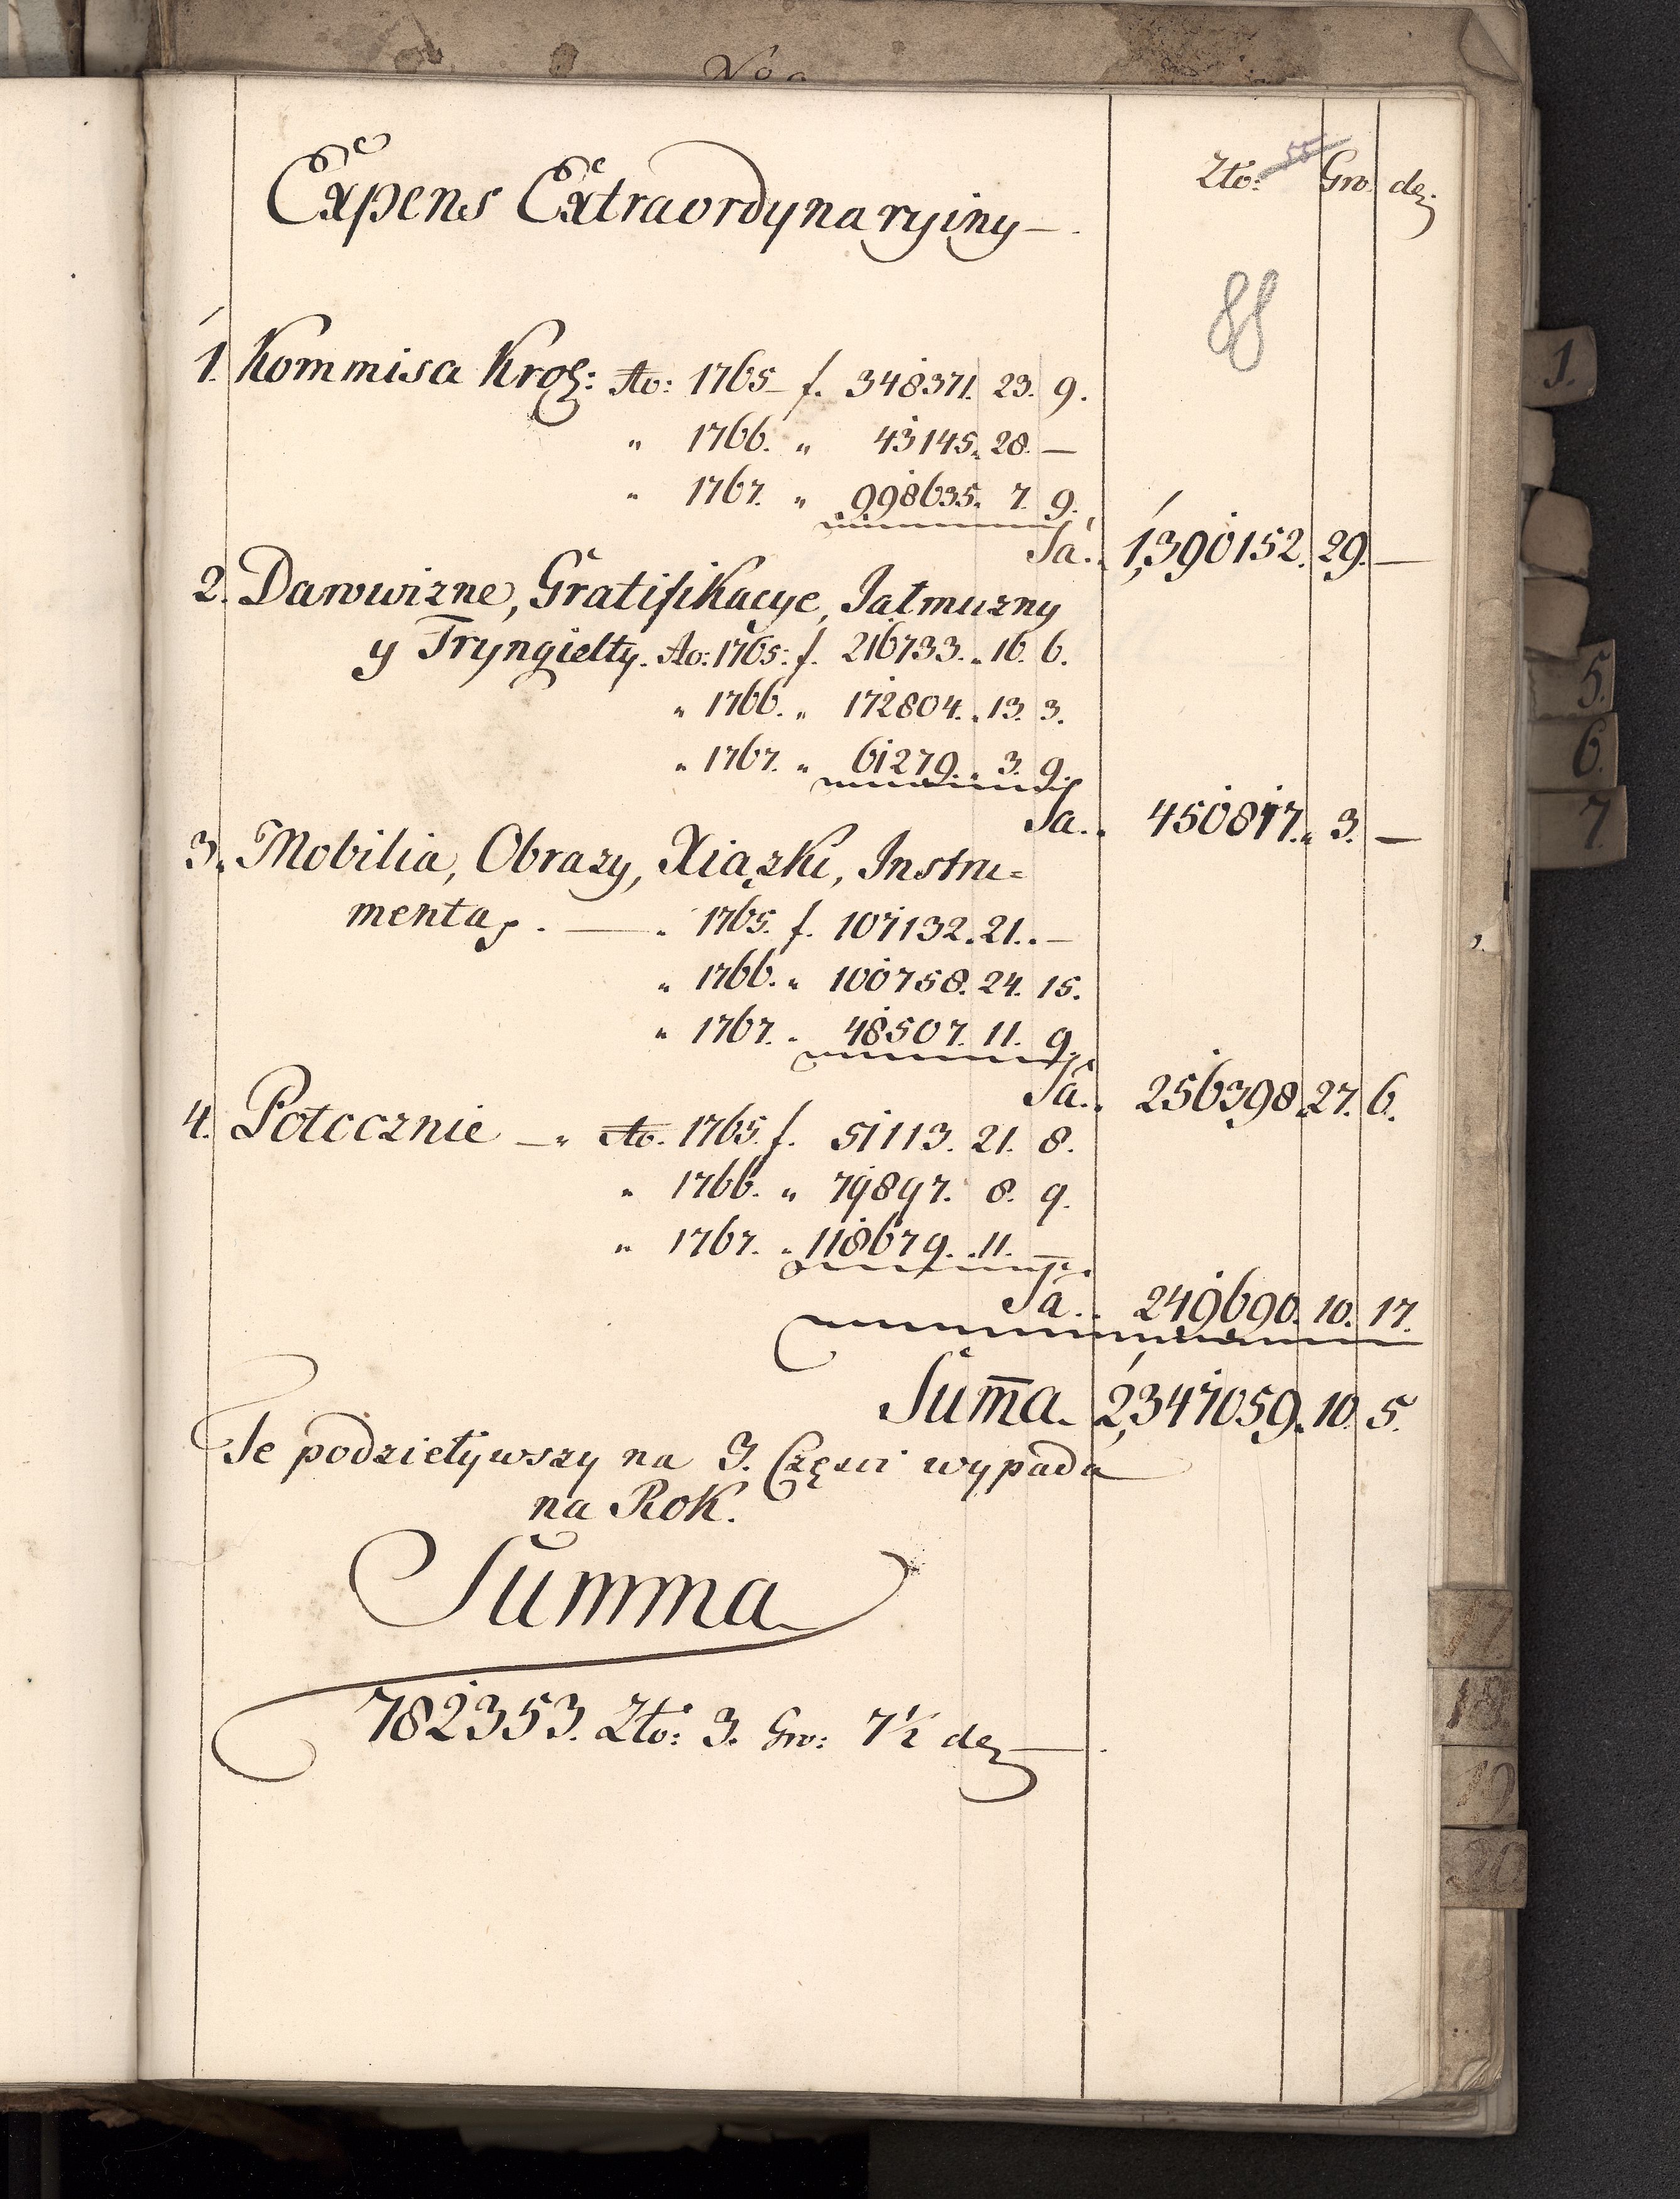 Nº 9
Zło: 55 Gro. de.
Expens Extraordynaryiny
88
1. Kommisa Kroz: Ao: 1765 f. 348371. 23. 9.
" 1766. " 43145. 28. —
" 1767. " 998635. 7. 9.
Sa. 1,390152. 29. —
2. Darowizne, Gratifikacye, Jałmużny
y Tryngielty. Ao: 1765: f. 216733. 16. 6.
" 1766. " 172804. 13. 3.
" 1767. " 61279. 3. 9.
Sa. 450817. 3. —
3. Mobilia, Obrazy, Xiążki, Instru=
menta. — " 1765. f. 107132. 21. —
" 1766. " 100758. 24. 15.
" 1767. " 48507. 11. 9.
Sa. 256398. 27. 6.
4. Potocznie — " Ao. 1765. f. 51113. 21. 8.
" 1766. " 79897. 8. 9.
" 1767. " 118679. 11. —
Sa. 249690. 10. 17.
Sum̄a. 2,347059. 10. 5.
Te podzieliwszy na 3. Części wypada
na Rok.
Summa
782353. Zło: 3. Gro: 7½ de
1.
5.
6.
7.
17
18.
19
20